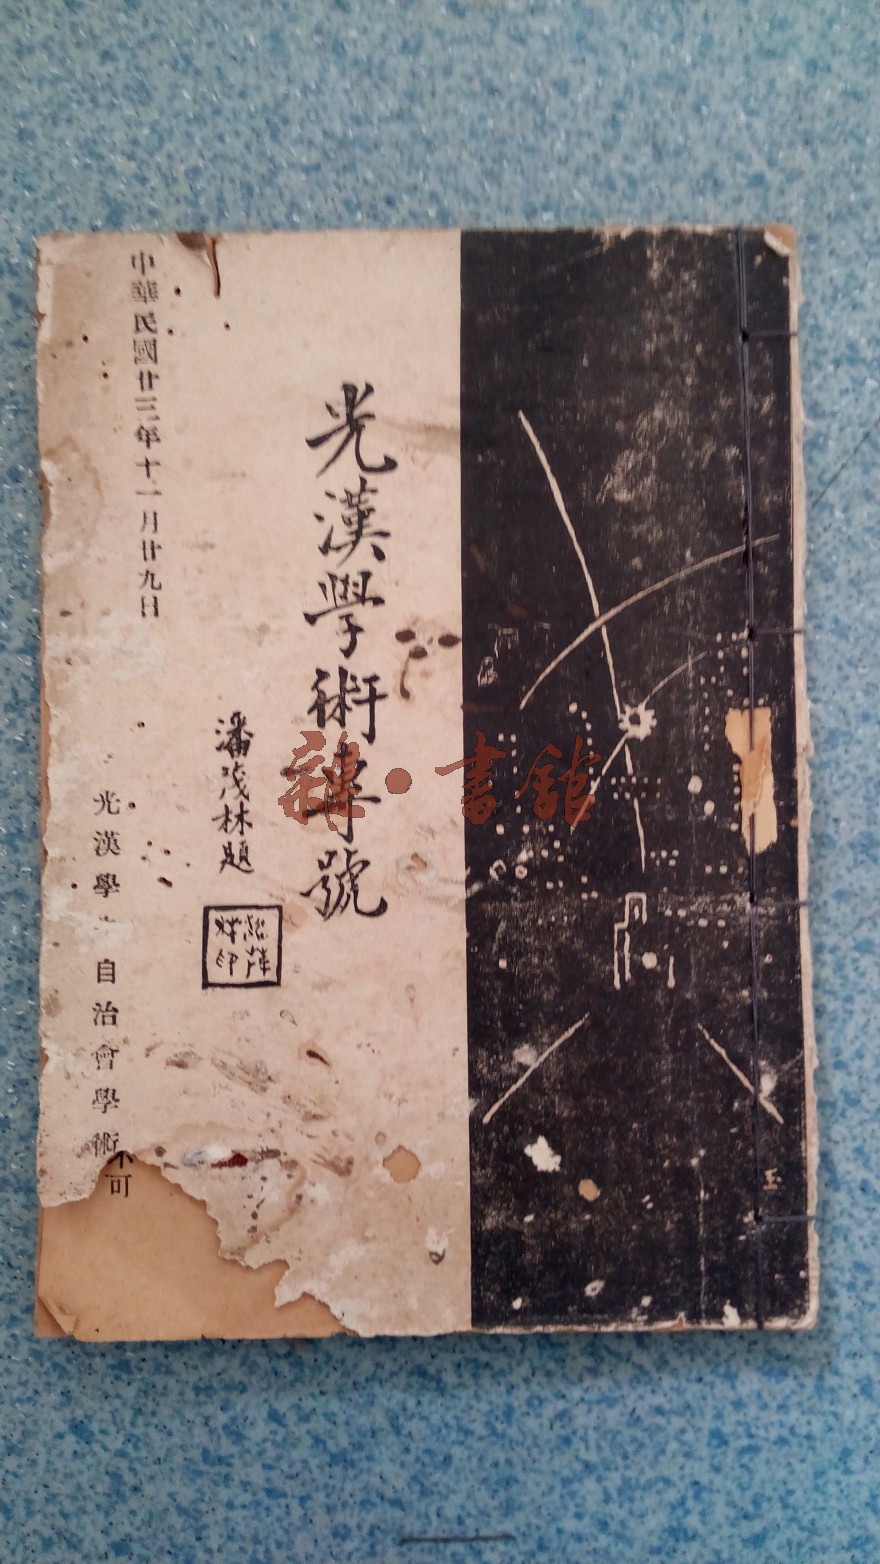 光漢學術專號
潘茂林題
中華民國廿三年十一月廿九日
光漢學 自治會學術
可
雜·書館